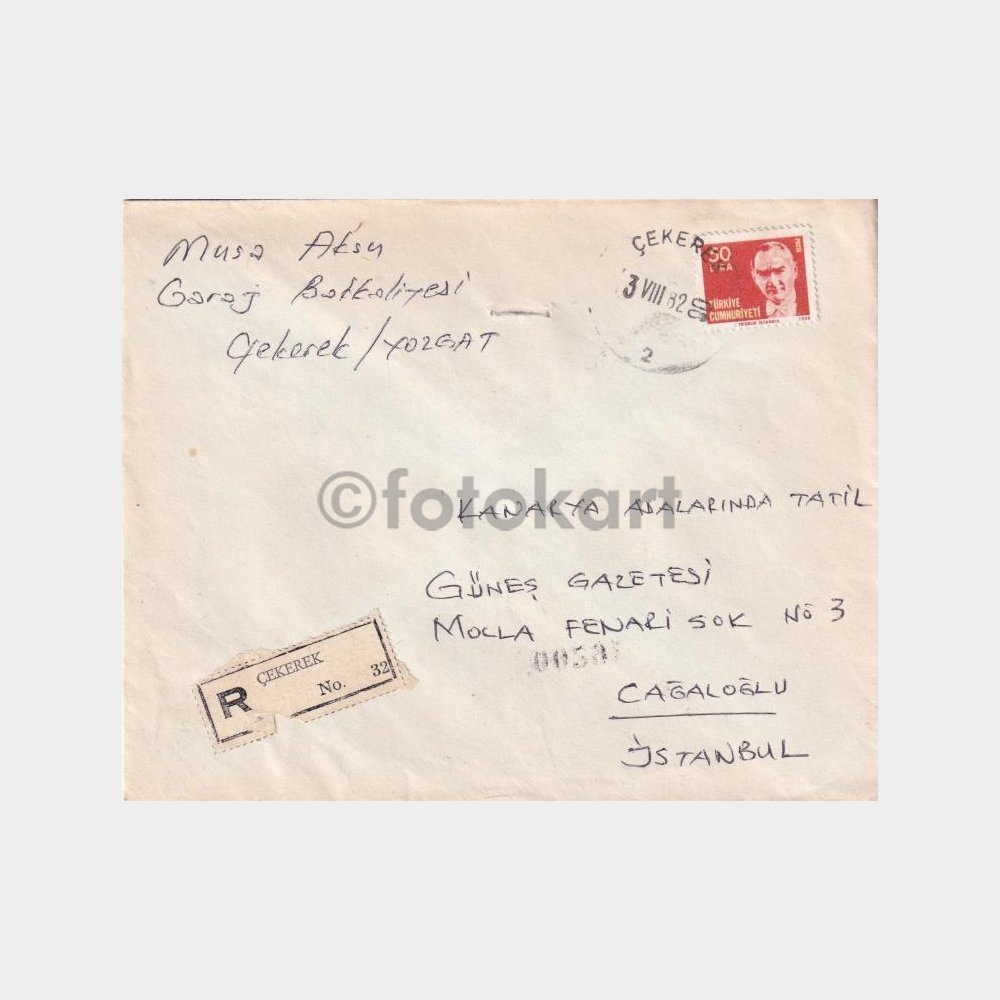 Musa Aksu
Garaj Batkaliyesi
Çekerek / YOZGAT
ÇEKERE
3 VIII 82
2
50
LİRA
TÜRKİYE
CUMHURİYETİ
©fotokart
KANARYA ADALARINDA TATİL
GÜNEŞ GAZETESİ
MOLLA FENARİ SOK NO 3
ÇEKEREK
R No. 32
CAĞALOĞLU
İSTANBUL